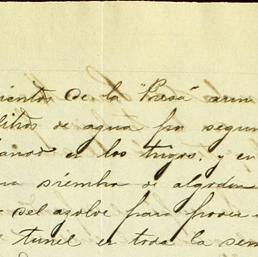 mientos de la "Presa" aun
litros de agua por segun
en los trigos, y en
na siembra de algodon
del azolve para poder
l tunel en toda la sem